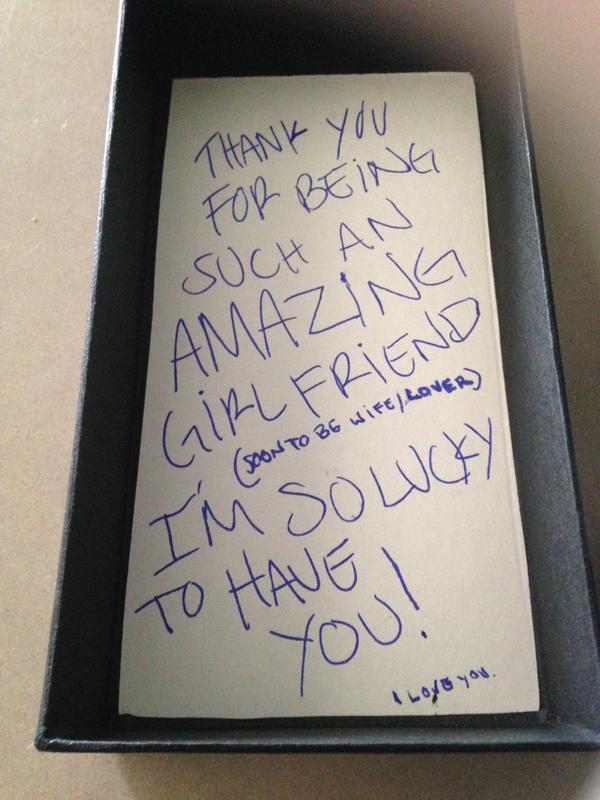 THANK YOU
FOR BEING
SUCH AN
AMAZING
GIRLFRIEND
(SOON TO BE WIFE/LOVER)
I'M SO LUCKY
TO HAVE
YOU!
I LOVE YOU.